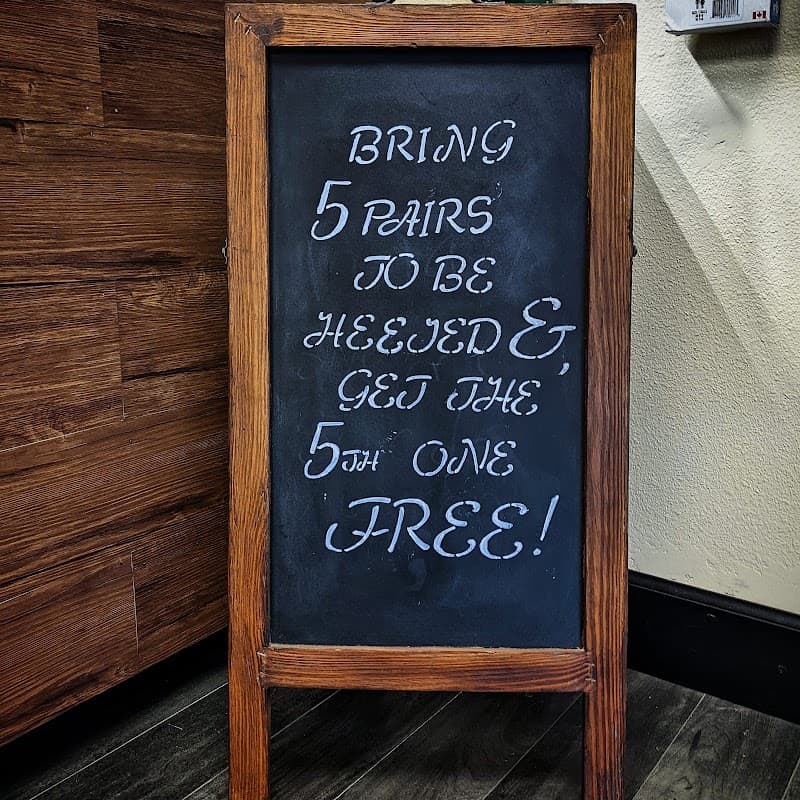 BRING
5 PAIRS
TO BE
HEELED &,
GET THE
5TH ONE
FREE!